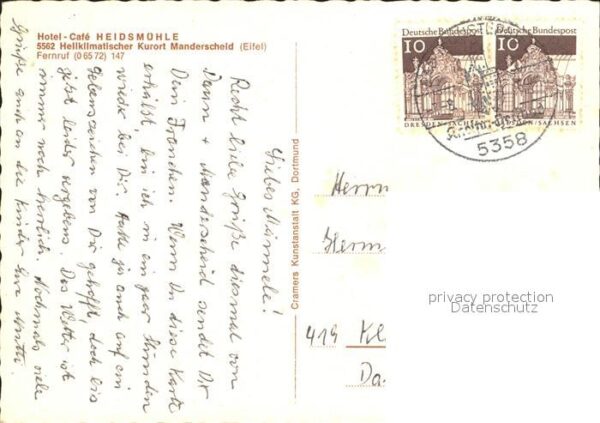 Hotel - Café HEIDSMÜHLE
5562 Heilklimatischer Kurort Manderscheid (Eifel)
Fernruf (0 65 72) 147
Liebes Männele!
Recht liebe Grüße diesmal von
Daun + Manderscheid sendet Dir
Dein Fränzchen. Wenn Du diese Karte
erhälst, bin ich in ein paar Stunden
wieder bei Dir. Hatte ja auch auf ein
Lebenszeichen von Dir gehofft, doch bis
jetzt leider vergebens. Das Wetter ist
immer noch herrlich. Nochmals viele
Grüße auch an die Kinder Eure Mutti.
Cramers Kunstanstalt KG, Dortmund
Deutsche Bundespost
10
DRESDEN/SACHSEN
Deutsche Bundespost
10
DRESDEN/SACHSEN
5358
Herrn
Herm
419 Kl
Da
privacy protection
Datenschutz